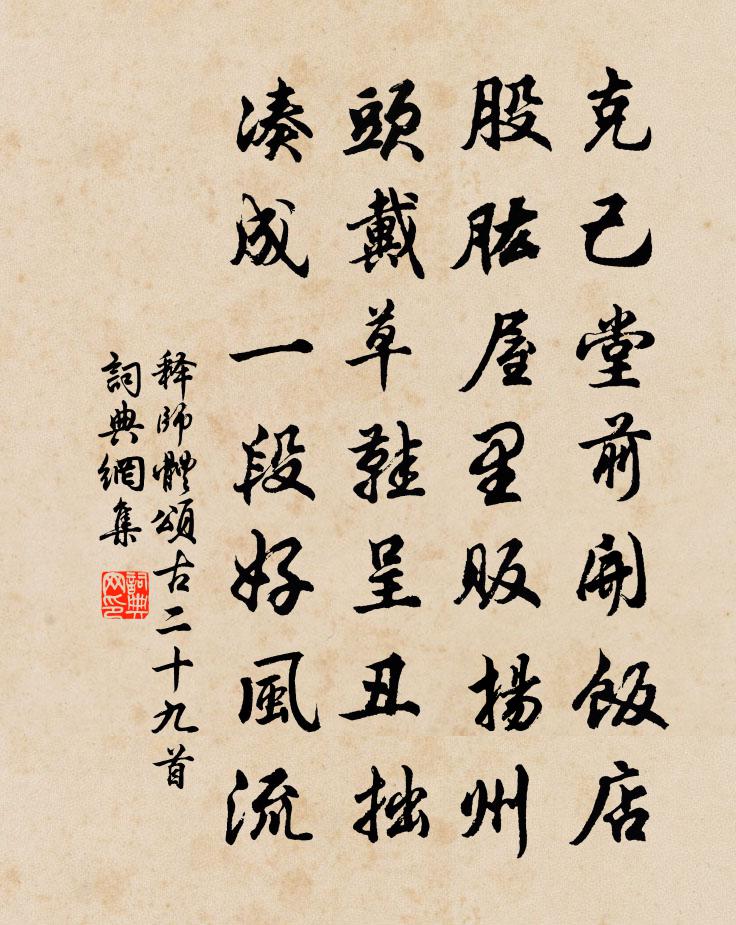 克己堂前開飯店
股肱屋里販揚州
頭戴草鞋呈丑拙
湊成一段好風流
释師體頌古二十九首
詞典網集
詞典网印